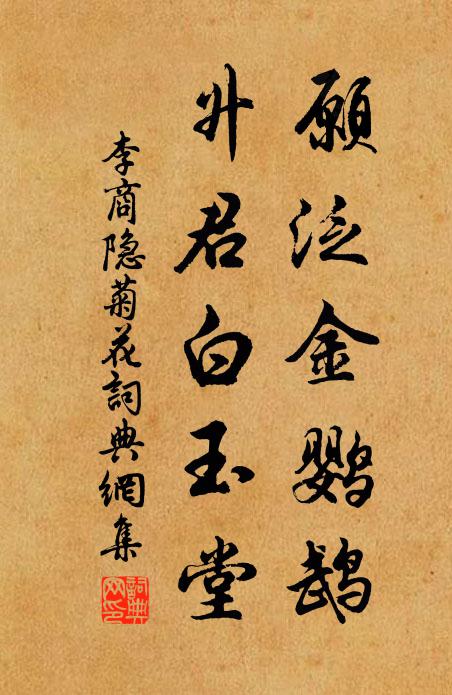 願泛金鹦鹉
升君白玉堂
李商隐菊花詞典網集
詞典网印